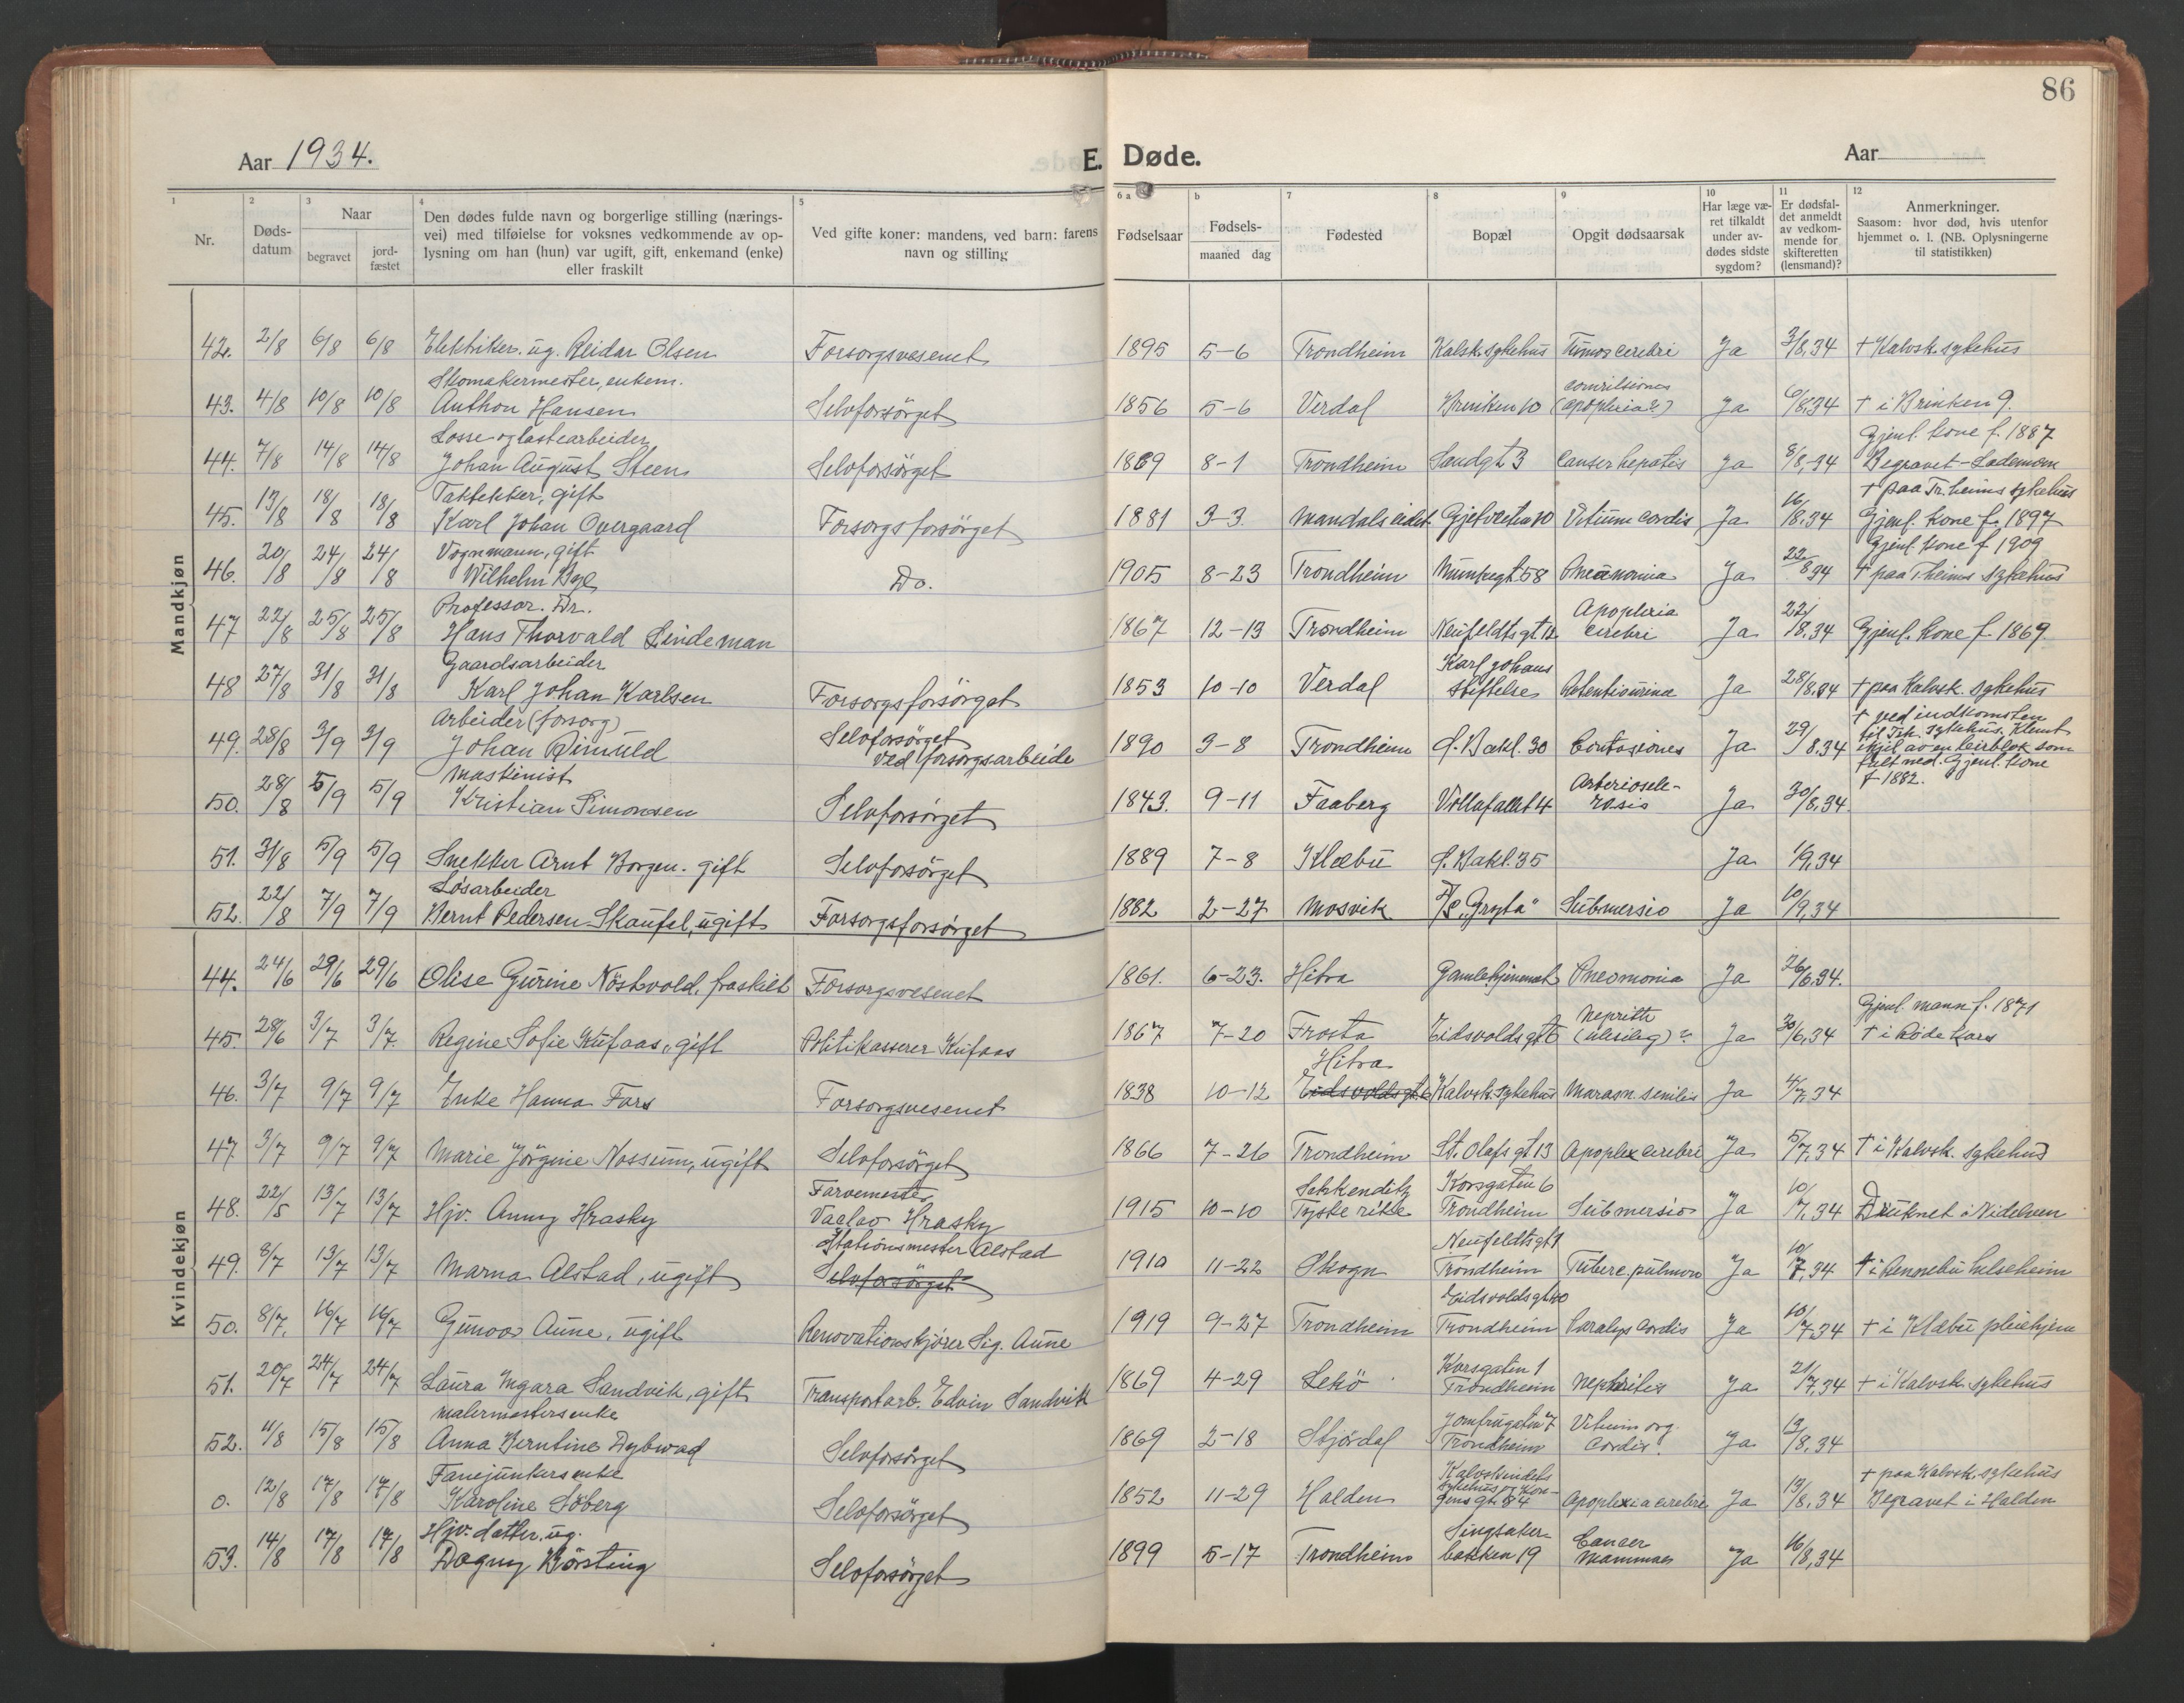 86
Aar 1934.
E. Døde.
Aar
1
2
3
4
5
6 a
b
7
8
9
10
11
12
Nr.
Døds-
datum
Naar
begravet
jord-
fæstet
Den dødes fulde navn og borgerlige stilling (nærings-
vei) med tilføielse for voksnes vedkommende av op-
lysning om han (hun) var ugift, gift, enkemand (enke)
eller fraskilt
Ved gifte koner: mandens, ved barn: farens
navn og stilling
Fødselsaar
Fødsels-
maaned dag
Fødested
Bopæl
Opgit dødsaarsak
Har læge væ-
ret tilkaldt
under av-
dødes sidste
sygdom?
Er dødsfal-
det anmeldt
av vedkom-
mende for
skifteretten
(lensmand)?
Anmerkninger.
Saasom: hvor død, hvis utenfor
hjemmet o. l. (NB. Oplysningerne
til statistikken)
Mandkjøn
42. 2/8 6/8 6/8 Elektriker. ug. Reidar Olsen Forsorgsvesenet 1895 5-6 Trondheim Kalsk. sykehus Tumor cerebri Ja 3/8,34 † Kalvsk. sykehus
Skomakermester, enkem.
43. 4/8 10/8 10/8 Anthon Hansen Selvforsörget 1856 5-6 Verdal Brinken 10 (apoplexia?) Ja 6/8,34 † i Brinken 9.
Losse og lastearbeider Gjenl. kone f. 1887
44. 7/8 14/8 14/8 Johan August Steen Selvforsörget 1869 8-1 Trondheim Sandgt 3 Canser hepatis Ja 8/8,34 Begravet - Lademoen
Taktekker, gift † paa Tr.heims sykehus
45. 13/8 18/8 18/8 Karl Johan Overgaard Forsorgsforsörget 1881 3-3 Mandalseidet Gjetveitvn 10 Vitium cordis Ja 16/8,34 Gjenl. kone f. 1897
Vognmann, gift Gjenl. kone f 1909
46. 20/8 24/8 24/8 Wilhelm Do. 1905 8-23 Trondheim Munkegt 58 Pneumonia Ja 22/8 34 † paa T.heims sykehus
Professor. Dr. Apoplexia
47 22/8 25/8 25/8 Hans Thorvald Lindeman 1867 12-13 Trondheim Neufeldtsgt 12 cerebri Ja 22/8,34 Gjenl. kone f. 1869
Gaardsarbeider Karl Johans
48 27/8 31/8 31/8 Karl Johan Karlsen Forsorgsforsörget 1853 10-10 Verdal stiftelse Retentio urina Ja 28/8,34 † paa Kalvsk. sykehus
Arbeider (forsorg) Selvforsörget † ved indkomsten
til Trh. sykehus. Klemt
49. 28/8 3/9 3/9 Johan Rimuld ved forsorgsarbeide 1890 3-8 Trondheim Ö. Bakl. 30 Contusiones Ja 29/8.34 ihjel av en leirblok som
falt ned. Gjenl. kone
f 1882.
Maskinist Arterioscle-
50. 28/8 5/9 5/9 Kristian Simonsen Selvforsörget 1843. 9-11 Faaberg Vollafallet 4 rosis Ja 30/8,34.
51. 31/8 5/9 5/9 Snekker Arnt Borgen. gift Selvforsörget 1889 7-8 Klæbu Ö. Bakl. 35 Ja 1/9,34
Løsarbeider
52. 22/8 7/9 7/9 Bernt Pedersen Skaufel, ugift Forsorgsforsörget 1882 2-27 Mosvik "Gryta" Submersio Ja 10/9,34
Kvindekjøn
44. 24/6 29/6 29/6 Olise Gurine Nöstvold, fraskilt Forsorgsvesenet 1861. 6-23. Hitra Gamlehjemmet Pneomonia Ja 26/6.34.
Nepritt Gjenl. mann f. 1871
45. 28/6 3/7 3/7. Regine Sofie Kufaas, gift Politikasserer Kufaas 1867 7-20 Frosta Eidsvoldsgt 6 Ja 30/6,34 † i Røde Kors
Hitra
46. 3/7 9/7 9/7 Enke Hanna Fors Forsorgsvesenet 1838 10-12 Eidsvoldsgt. 6 Kalvsk. sykehus Marasm. senilis Ja 4/7,34
47 3/7 9/7 9/7 Marie Jörgine Nossum, ugift Selvforsörget 1866 7-26 Trondheim St. Olafsgt 13 Apoplex cerebri Ja 5/7,34 † i Kalvsk. sykehus
Farvemester Korsgaten 6
48. 22/5 13/7 13/7 Hjv. Anny Hrasky Vaclav Hrasky 1915 10-10 Tyske rike Trondheim Submersio Ja 10/7,34 Druknet i Nidelven
Stationsmester Alstad Neufeldtsgt 1
49. 8/7 13/7 13/7 Marna Alstad, ugift Selvforsörget 1910 11-22 Skogn Trondheim Tuberc. pulmon Ja 10/7,34 † i Rennebu helseheim
Eidsvoldsgt 10
50. 8/7. 16/7 16/7 Gunvor Aune, ugift Renovationskjörer Sig. Aune 1919 9-27 Trondheim Trondheim Paralys cordis Ja 10/7,34 † i Klæbu pleiehjem
Korsgaten 1
51. 20/7 24/7 24/7 Laura Ingara Sandvik, gift Transportarb. Edvin Sandvik 1869 4-29 Lekö Trondheim Nephritis Ja 21/7,34 † i Kalvsk. sykehus
Malermesters enke Jomfrugaten 7 Vitium org.
52. 11/8 15/8 15/8 Anna Berntine Dybwad Selvforsörget 1869 2-18 Stjördal Trondheim Cordis Ja 13/8,34
Fanejunkers enke Kalvskindets † paa Kalvsk. sykehus
sykehus og Kon-
0. 12/8 17/8 17/8 Karoline Söberg Selvforsörget 1852 11-29 Halden gens gt. 84 Apoplexia cerebri Ja 13/8,34 Begravet i Halden
Hjv. datter. ug. Singsaker- Cancer
53. 14/8 17/8 17/8 Dagny Börsting Selvforsörget 1899 5-17 Trondheim bakken 19 Mammae Ja 16/8,34